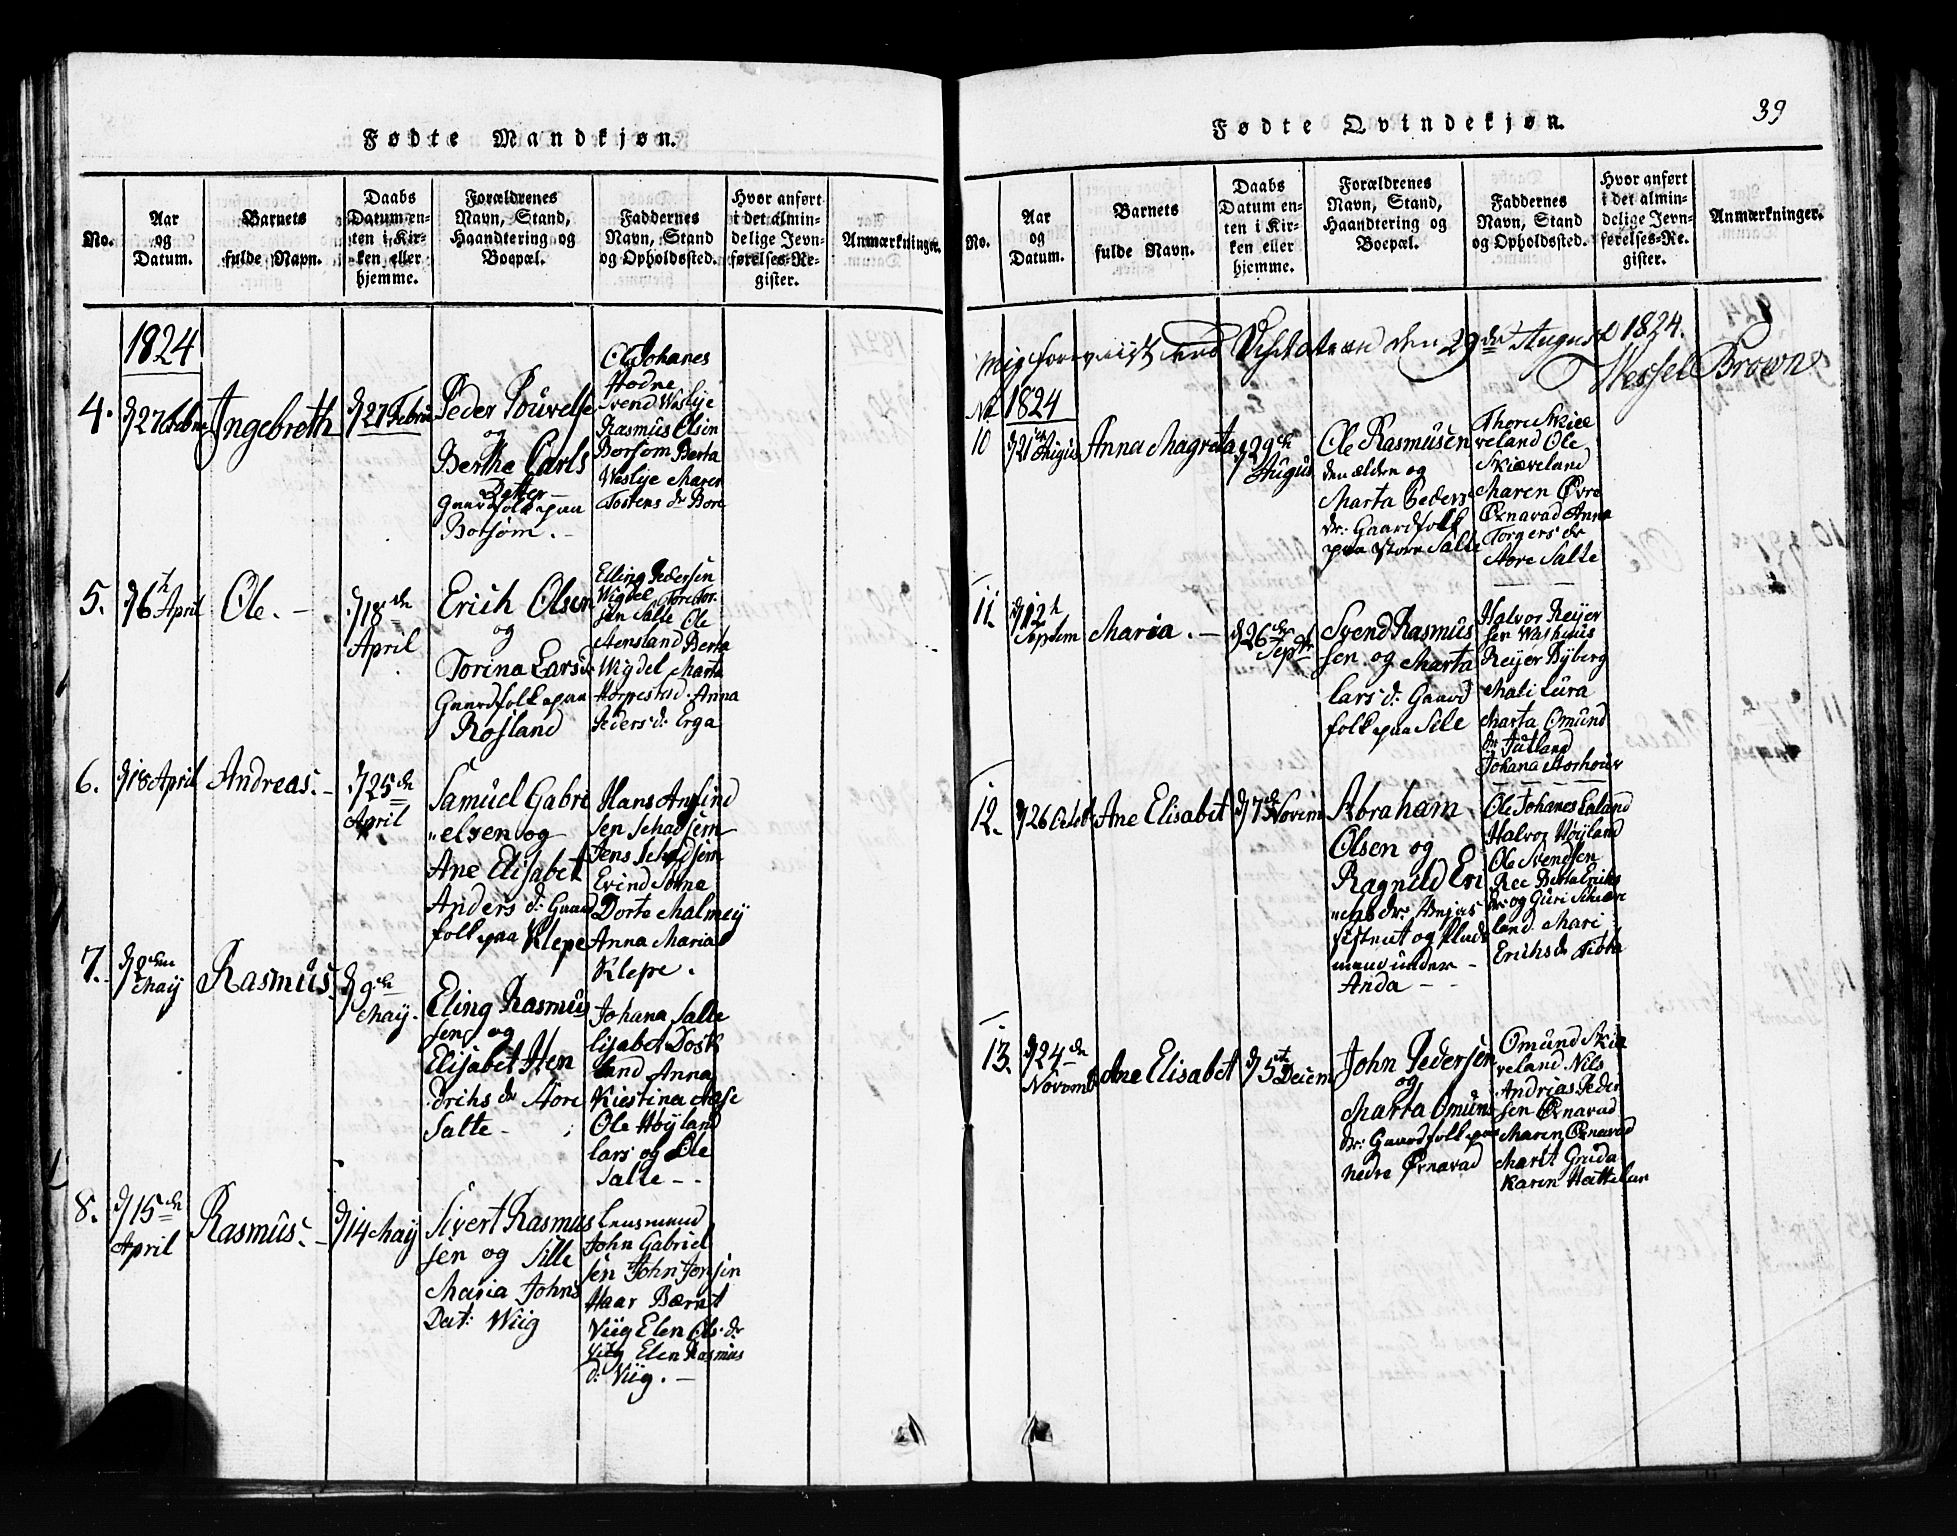 Fødte Mandkjøn.
No.
Aar
og
Datum.
Barnets
fulde Navn.
Daabs
Datum en-
ten i Kir-
ken eller
hjemme.
Forældrenes
Navn, Stand,
Haandtering og
Boepæl.
Faddernes
Navn, Stand
og Opholdssted.
Hvor anført
i det almin-
delige Jevn-
førelses-Re-
gister.
Anmærkninger.
1824
4.
Ingebreth
Peder Pouvelse
og
Berthe Carls
Datter
Gaardfolk paa
Borsøm.
Ole Johanes
Hodne
Svend Waslye
Rasmus Olsen
Borsøm Berta
Waslye Maren
Tostens dr Bore
5.
d 6th April
Ole.
d 18de
April
Erich Olsen
og
Torina Lars d
Gaardfolk paa
Rosland
Elling Pedersen
Wigdel Tore Tor-
sen Salte Ole
Stensland Berta
Wigdel Marta
Horpestad Anna
Peders d: Erga
6.
d 18 April
Andreas.
d 25de
April
Samuel Gabri
"elsen og
Ane Elisabet
Anders d: Gaard
folk paa Klepe
Hans
sen
Jens
Evind
Dorte Malmey
Anna Maria
Klepe.
7.
May
Rasmus
d 9de
May.
Eling Rasmus
sen og
Elisabet Hen
driks dr Store
Salte
Johana Salte
lisabet
land Anna
Kiestina Aase
Ole Høyland
lars og Ole
Salte
8.
d 15de
April
Rasmus.
d 14 May
Sivert Rasmus
sen og Sille
Maria Johns
Dat: Wiig
Lensmand
John Gabriel
sen John Jonsen
Haar Bærnt
Viig Elen Ols. dr
Viig Elen Rasmus
d: Viig.
39
Fødte Qvindekjøn.
No.
Aar
og
Datum.
Barnets
fulde Navn.
Daabs
Datum en-
ten i Kir-
ken eller
hjemme.
Forældrenes
Navn, Stand,
Haandtering og
Boepæl.
Faddernes
Navn, Stand
og Opholdssted.
Hvor anført
i det almin-
delige Jevn-
førelses-Re-
gister.
Anmærkninger.
Mig foreviist ved Visitatsen den 29de August 1824.
Wessel Brown
No
1824
10
Anna Magreta
d 29de
Augus
Ole Rasmusen
den elden og
Marta Peders
dr: Gaardfolk
paa store Salte
Thore Skiæ
veland Ole
Skiæveland
Maren Øvre
Ørnavad Anna
Torgers dr
Store Salte
11.
d 12th
Septem
Maria.
d 26de
Septr
Svend Rasmus
sen og Marta
lars d: Gaard
folk paa Sele
Halvor Reyer
sen
Reyer Byberg
Mali Lura
Marta Omund
dr Jutland
Johana Storhoug
12.
Ane Elisabet
d 7de Novem
Abraham
Olsen og
Ragnild Eri
"chs dr:
og
mand under
Anda
Ole Johanes
Halvor Høyland
Ole Svendsen
Ree Berta Eriks
dr: og Guri Skiæve
land Mari
Erichs dr Tibta
13.
d 24de
Novemb
Ane Elisabet
d 5te Decem
John Pedersen
og
Marta Omuns
dr: Gaardfolk paa
Nedre Ørnavad
Omund Skiæ
veland Nils
Andrias Peder
sen Ørnavad
Maren Ørnavad
Marit Gruda
Karen